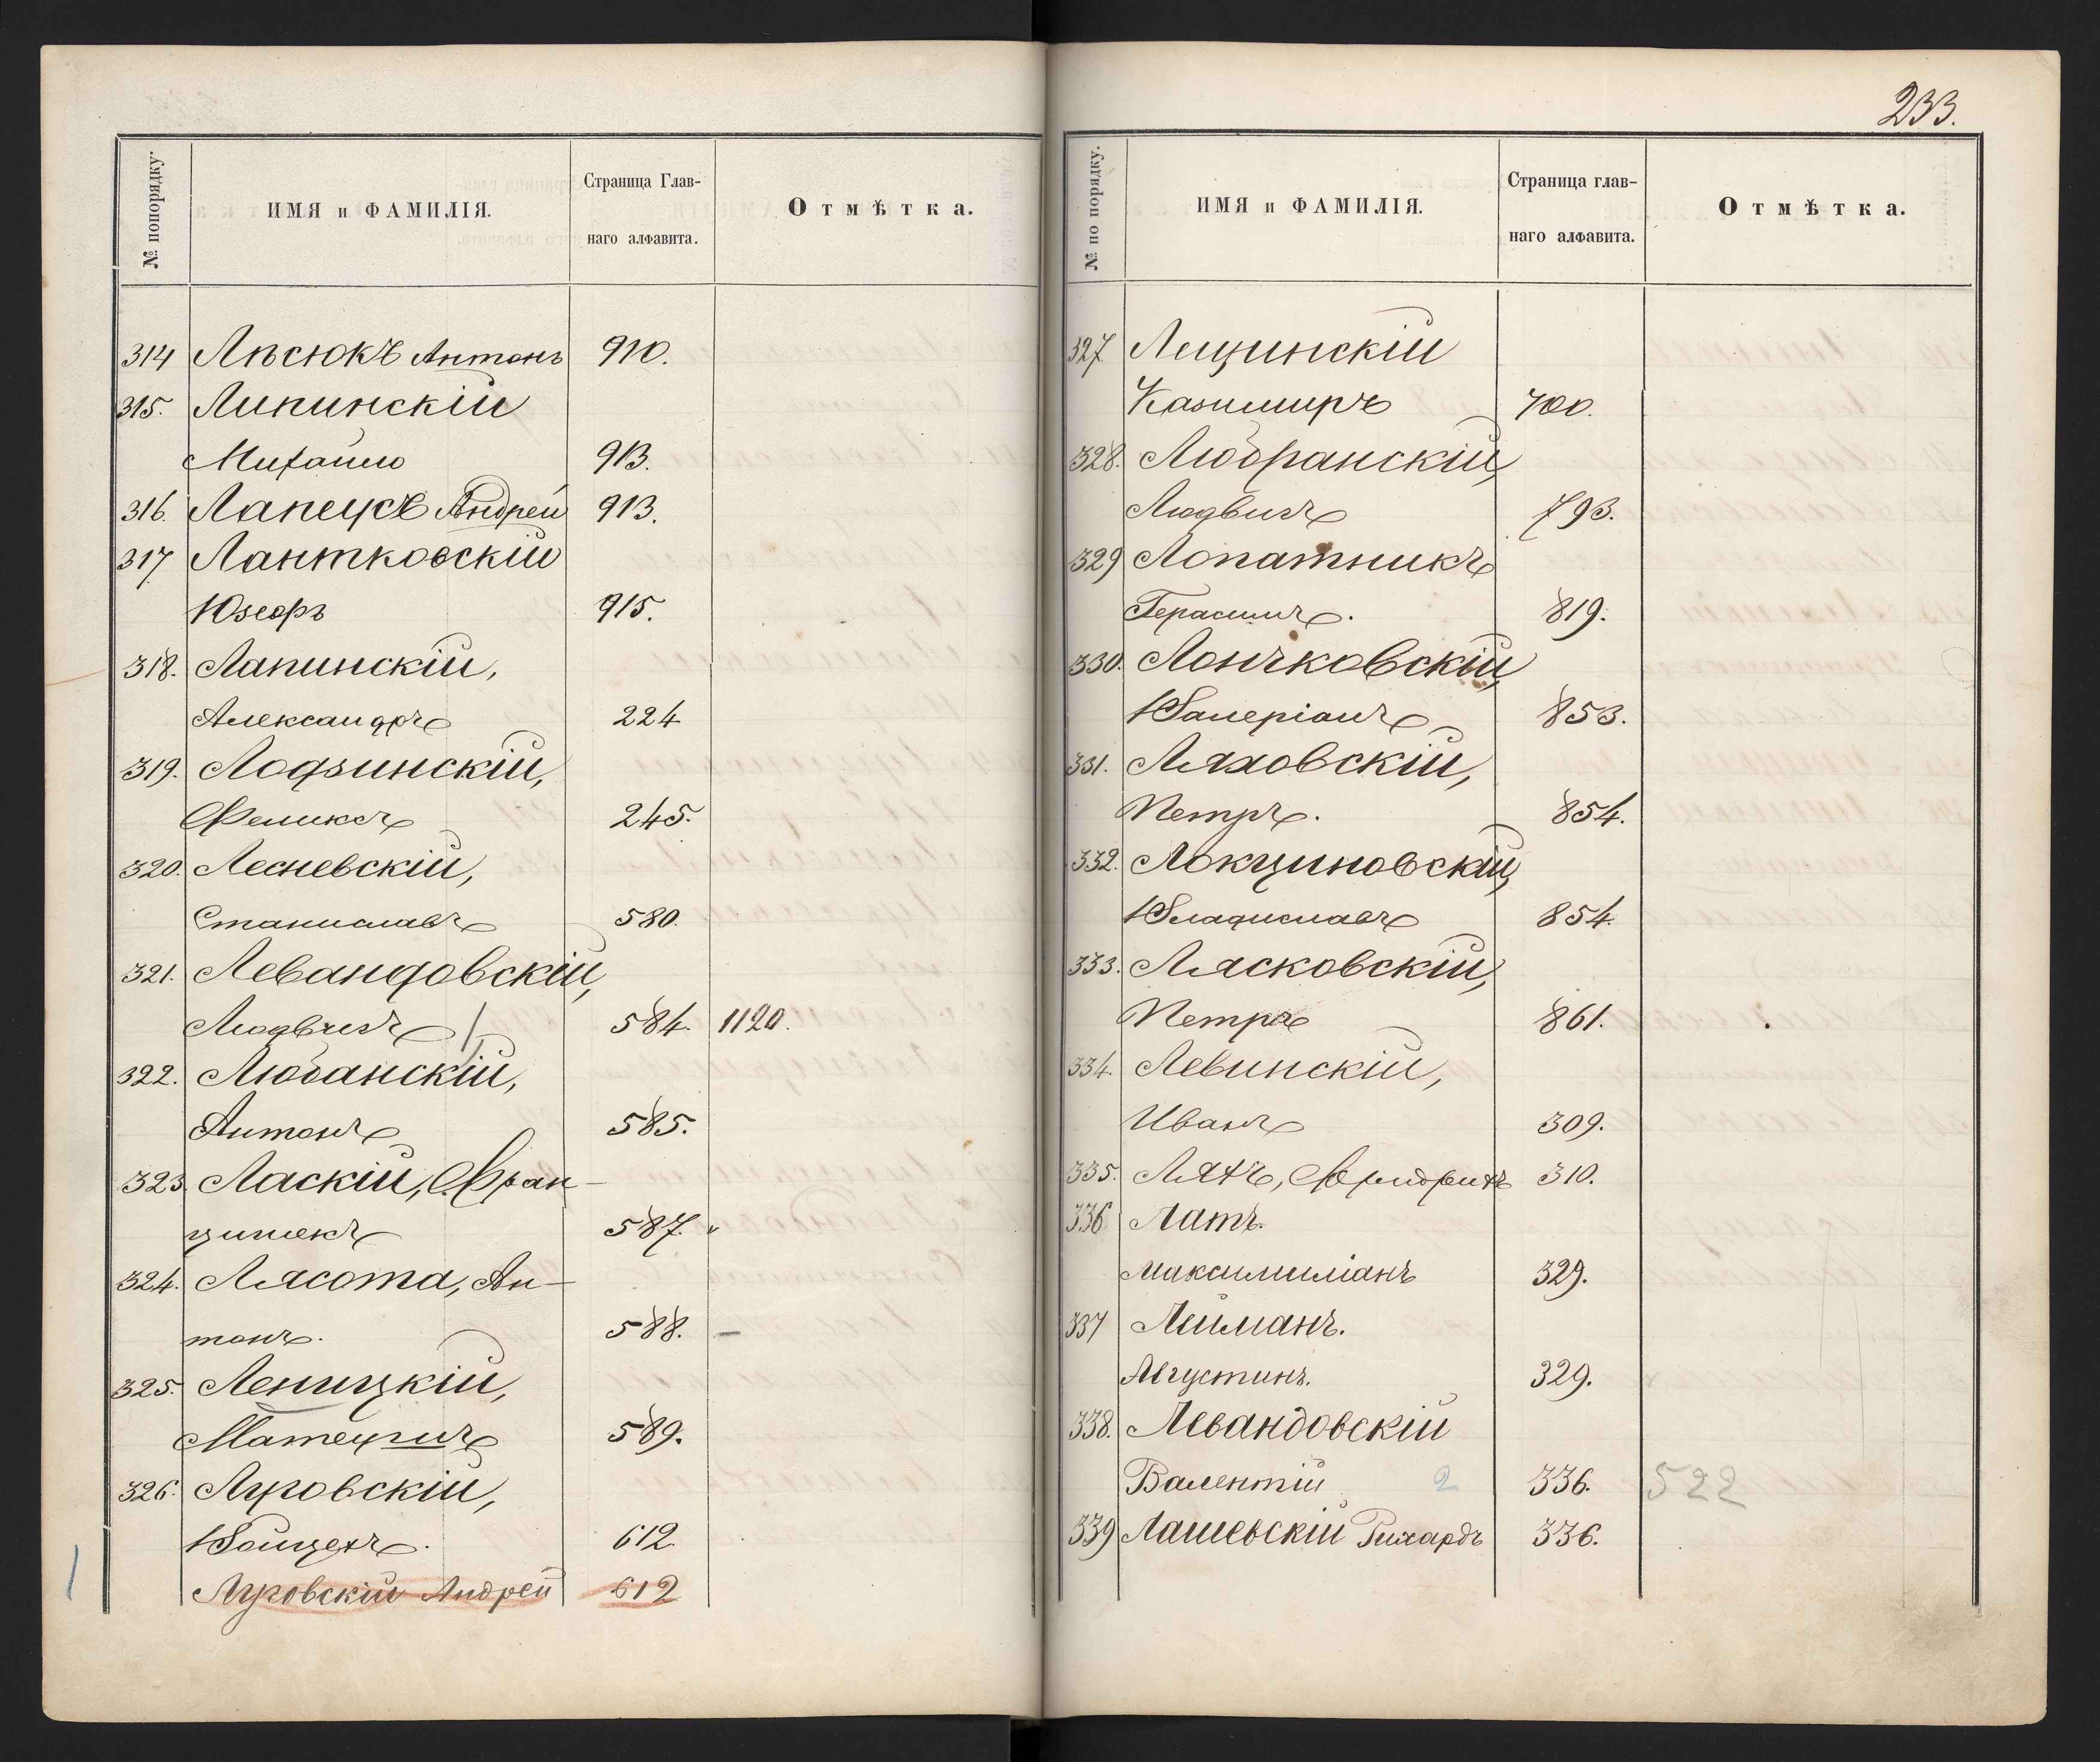 233.
№ попорядку.
ИМЯ и ФАМИЛІЯ.
Страница Глав-
наго алфавита.
Отмѣтка.
314 Лѣсюкъ Антонъ 910.
315. Липинскій
Михайло 913.
316. Лапецкъ Андрей 913.
317 Лантковскій
Юзефъ 915.
318. Лапинскій,
Александръ 224
319. Лодзинскій,
Феликсъ 245.
320. Лесневскій,
Станиславъ 580.
321. Левандовскій,
Людвигъ 584. 1120.
322. Любанскій,
Антонъ 585.
323. Ласкій, Фран-
цишекъ 587.
324. Лясота, Ан-
тонъ. 588. —
325. Леницкій,
Матеушъ 589.
326. Луговскій,
Войцехъ. 612.
Луговскій Андрей 612
№ по порядку.
ИМЯ и ФАМИЛІЯ.
Страница глав-
наго алфавита.
Отмѣтка.
327. Лещинскій
Казимиръ 700.
328. Любранскій,
Людвигъ 793.
329 Лопатникъ
Герасимъ. 819.
330. Лончковскій,
Валеріанъ 853.
331. Ляховскій,
Петръ. 854.
332. Локциновскій,
Владиславъ 854.
333. Лясковскій,
Петръ 861.
334. Левинскій,
Иванъ 309.
335. Ляхъ, Фридрихъ 310.
336. Латъ.
Максимиліанъ 329.
337 Лейманъ.
Августинъ. 329.
338. Левандовскій
Валентій 2 336. 522
339 Лашевскій Рихардъ 336.